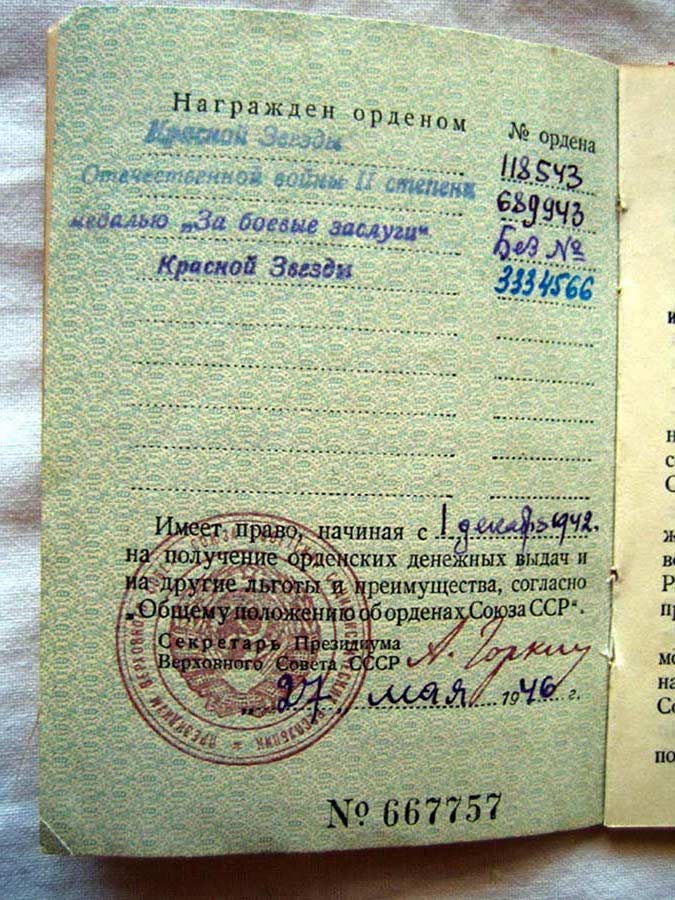 Награжден орденом № ордена
Красной Звезды 118543
Отечественной войны II степени 689943
медалью „За боевые заслуги“ Без №
Красной Звезды 3334566
Имеет право, начиная с 1 декабр 1942.
на получение орденских денежных выдач и
на другие льготы и преимущества, согласно
„Общему положению об орденах Союза ССР“.
Секретарь Президиума
Верховного Совета СССР А. Горкин
„27„ мая 1946 г.
№ 667757